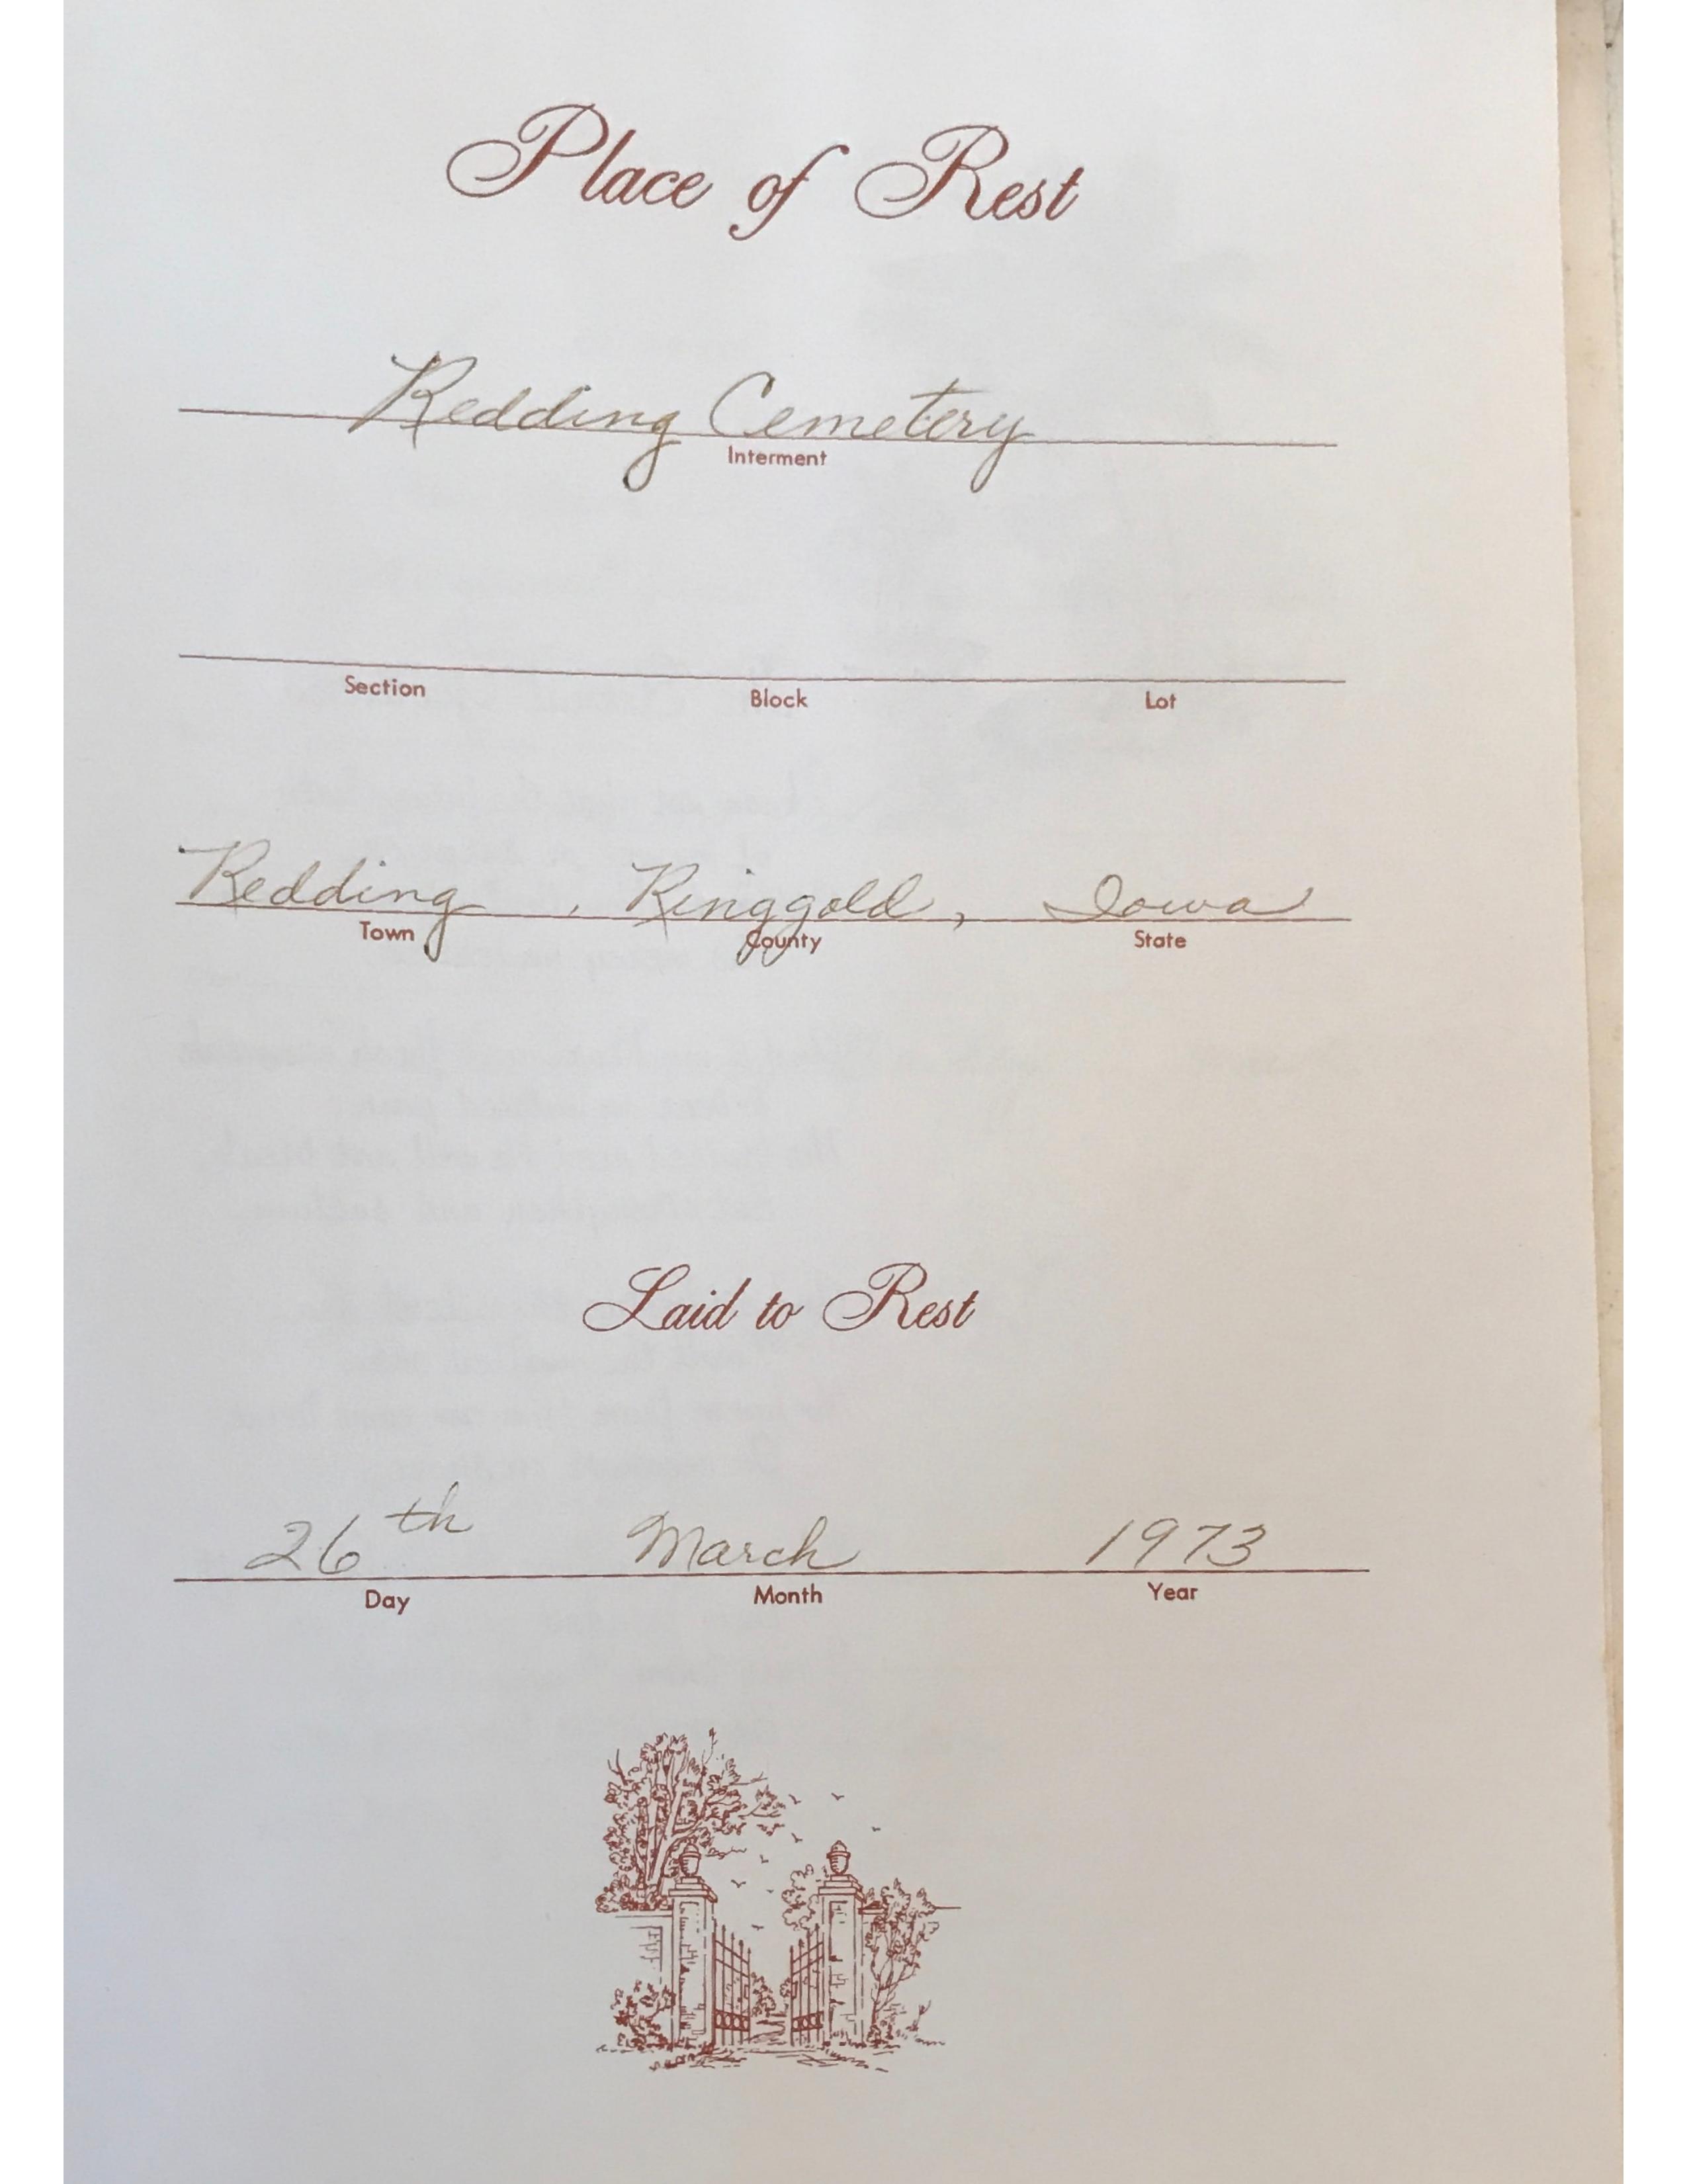 Place of Rest
Redding Cemetery
Interment
Section Block Lot
Redding , Ringgold, Iowa
Town County State
Laid to Rest
26th March 1973
Day Month Year